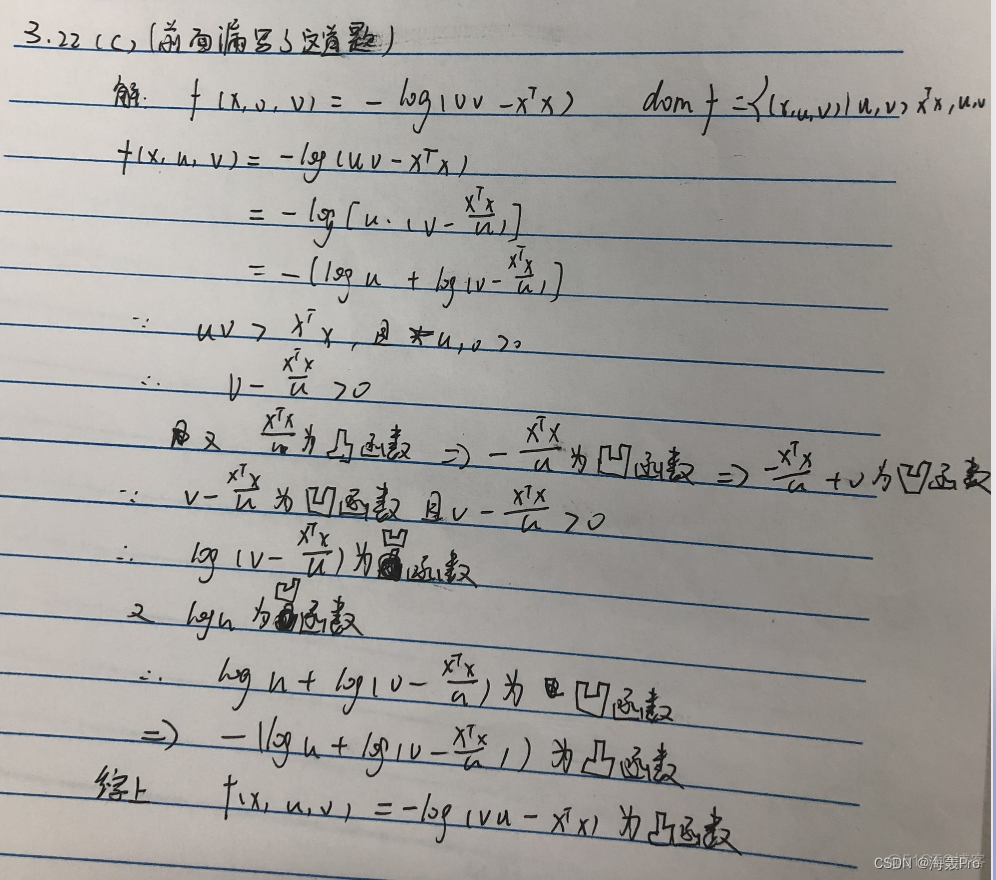 3.22 (C) (前面漏写了这道题)
解. f(x, u, v) = - log(uv - xᵀx) dom f = {(x,u,v) | u,v > xᵀx, u,v
f(x, u, v) = -log(uv - xᵀx)
= -log[u·(v - xᵀx/u)]
= -[log u + log(v - xᵀx/u)]
∵ uv > xᵀx, 且 u,v >0
∴ v - xᵀx/u >0
又 xᵀx/u 为凸函数 => - xᵀx/u 为凹函数 => -xᵀx/u + v为凹函数
∵ v - xᵀx/u 为凹函数 且v - xᵀx/u >0
∴ log(v - xᵀx/u)为凹函数
又 logu 为凹函数
∴ log u + log(v - xᵀx/u)为凹函数
=> -(log u + log(v - xᵀx/u)) 为凸函数
综上 f(x, u, v) = -log(vu - xᵀx) 为凸函数
CSDN @海轰Pro